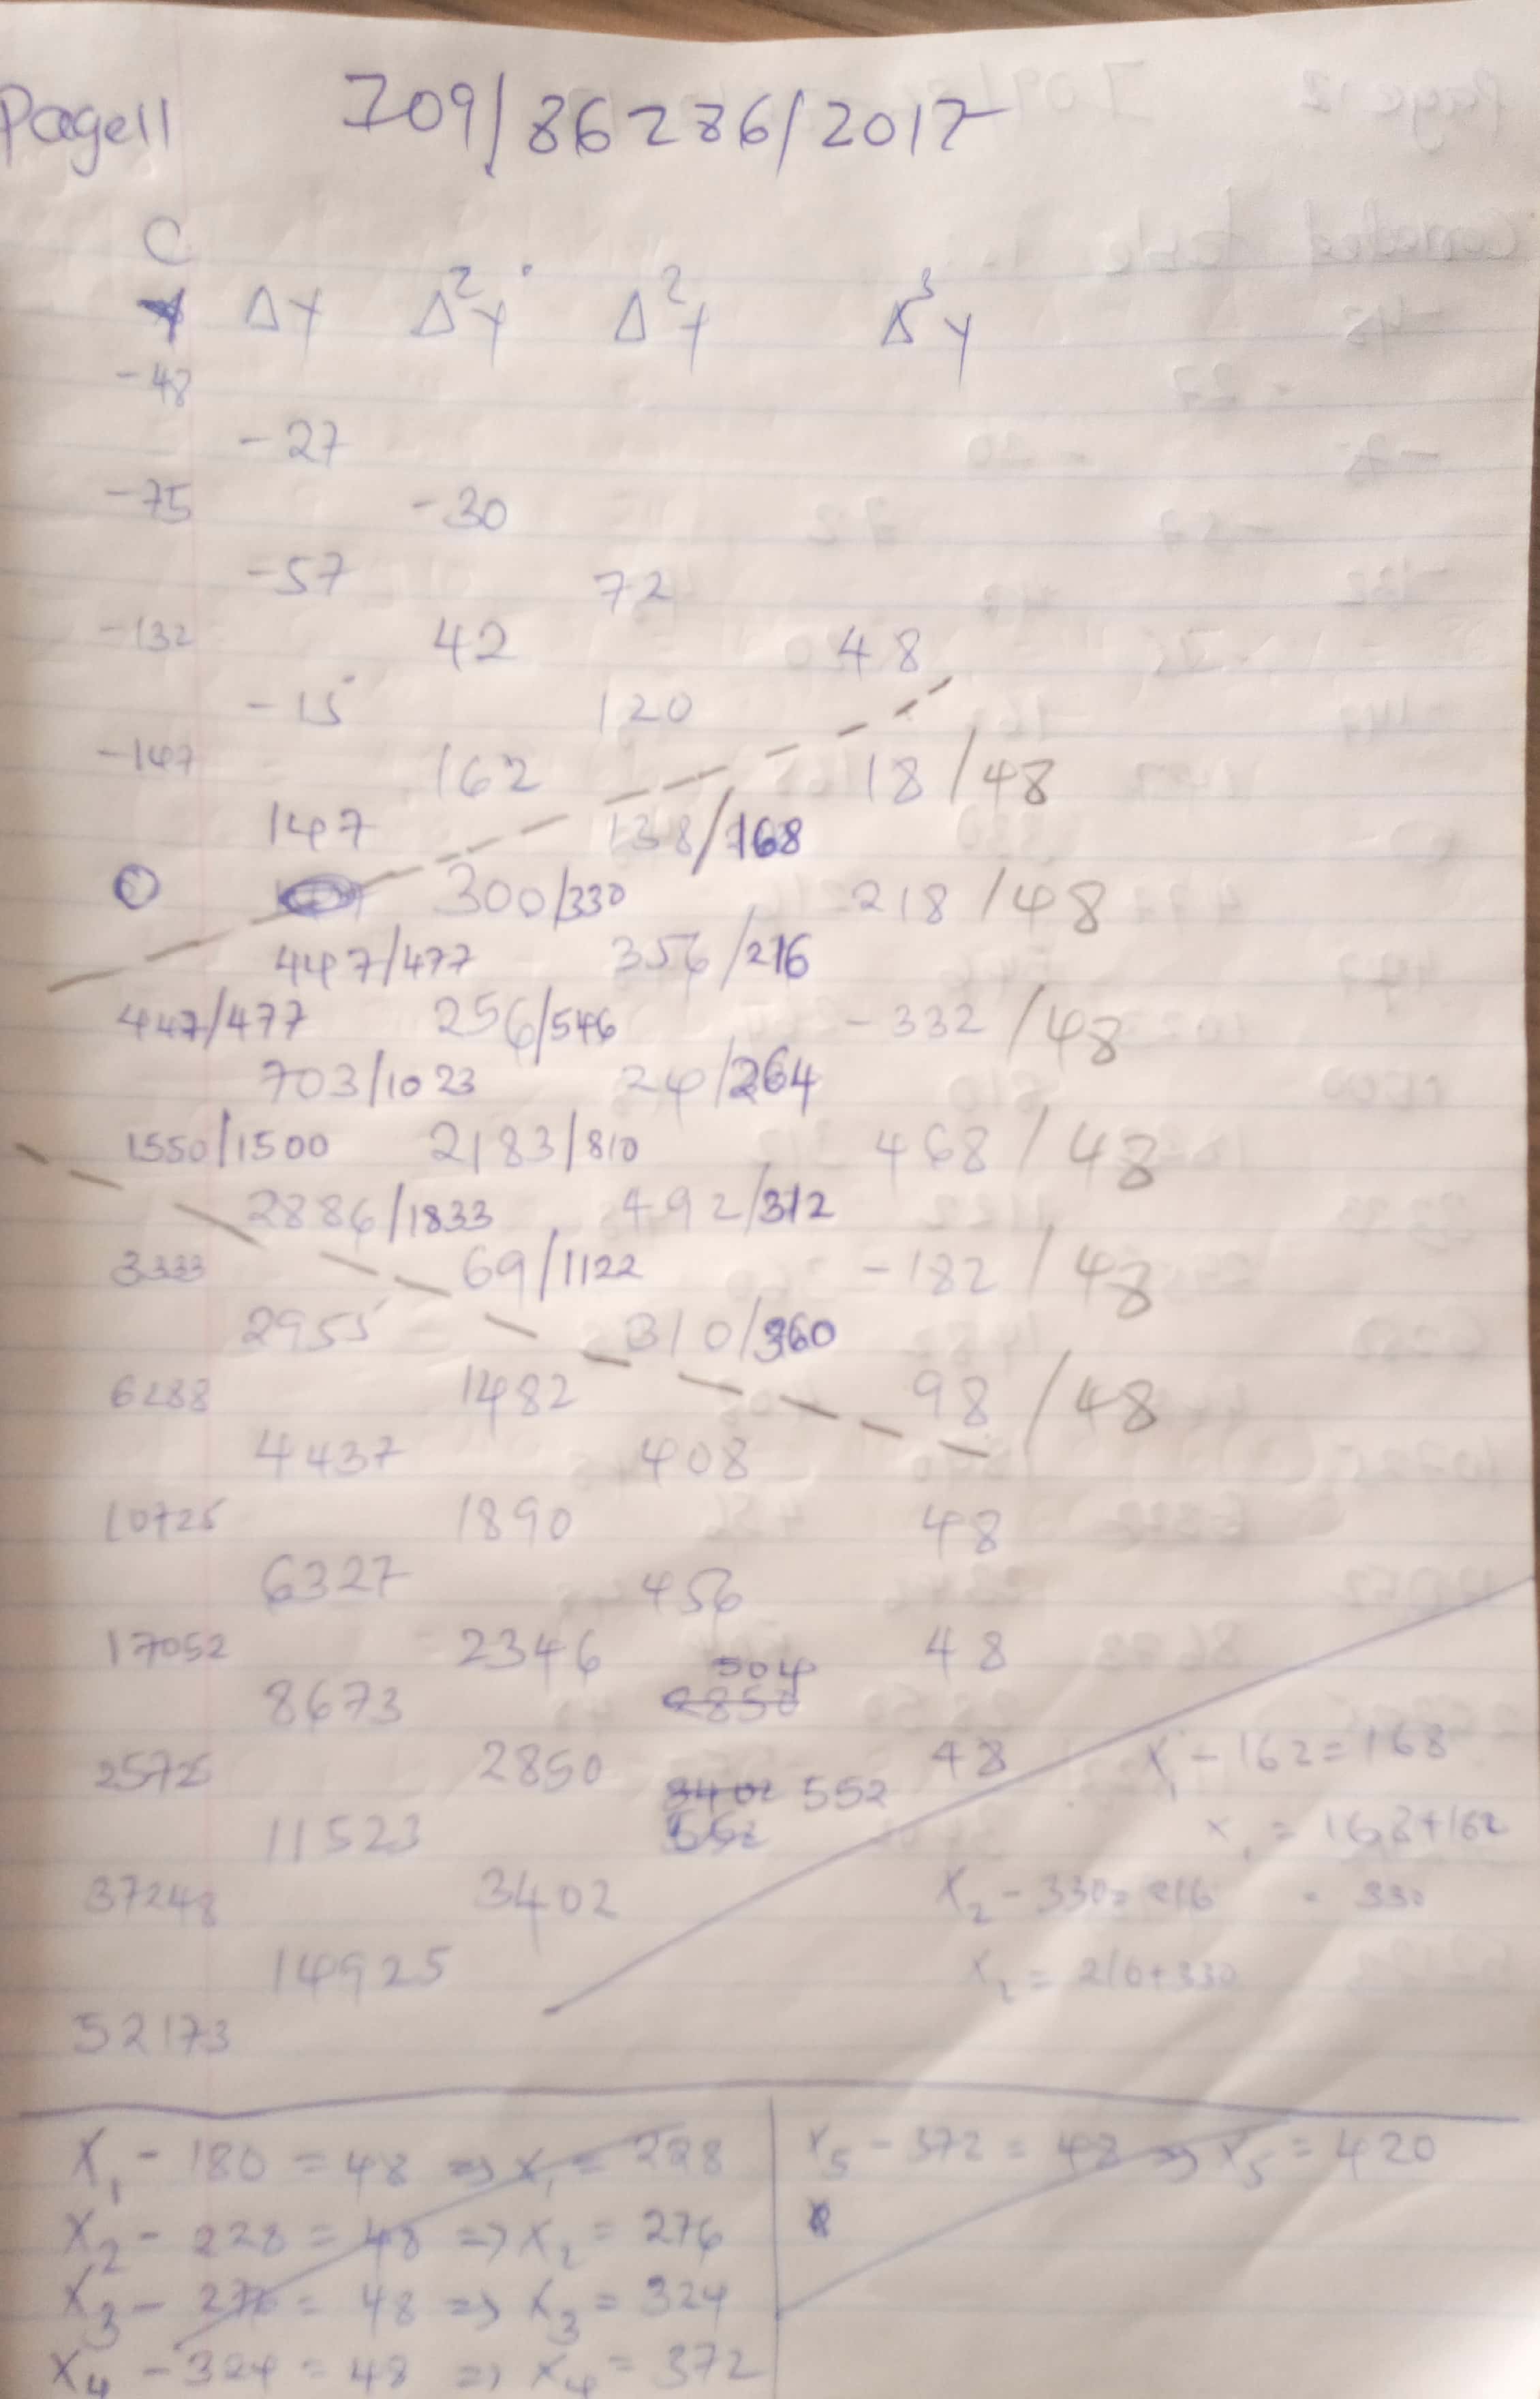 Page 11 I09/86286/2017
C
Y ΔY Δ²Y Δ²Y Δ³Y
-48
-27
-75 -30
-57 72
-132 42 48
-15 120
-147 162 18/48
147 138/168
0 300/330 218/48
447/477 356/216
447/477 256/546 -332/48
703/1023 24/264
1550/1500 2183/810 468/48
2886/1833 492/312
3333 69/1122 -182/48
2955 310/360
6288 1482 98/48
4437 408
10725 1890 48
6327 456
17052 2346 48
504
8673 2850
25725 2850 48 X₁ - 162 = 168
3402 552
11523 552 X₁ = 168+162
37248 3402 X₂ - 330 = 216 = 330
14925 X₂ = 216+330
52173
X₁ - 180 = 48 => X₁ = 228 X₅ - 372 = 48 => X₅ = 420
X₂ - 228 = 48 => X₂ = 276
X₃ - 276 = 48 => X₃ = 324
X₄ - 324 = 48 => X₄ = 372